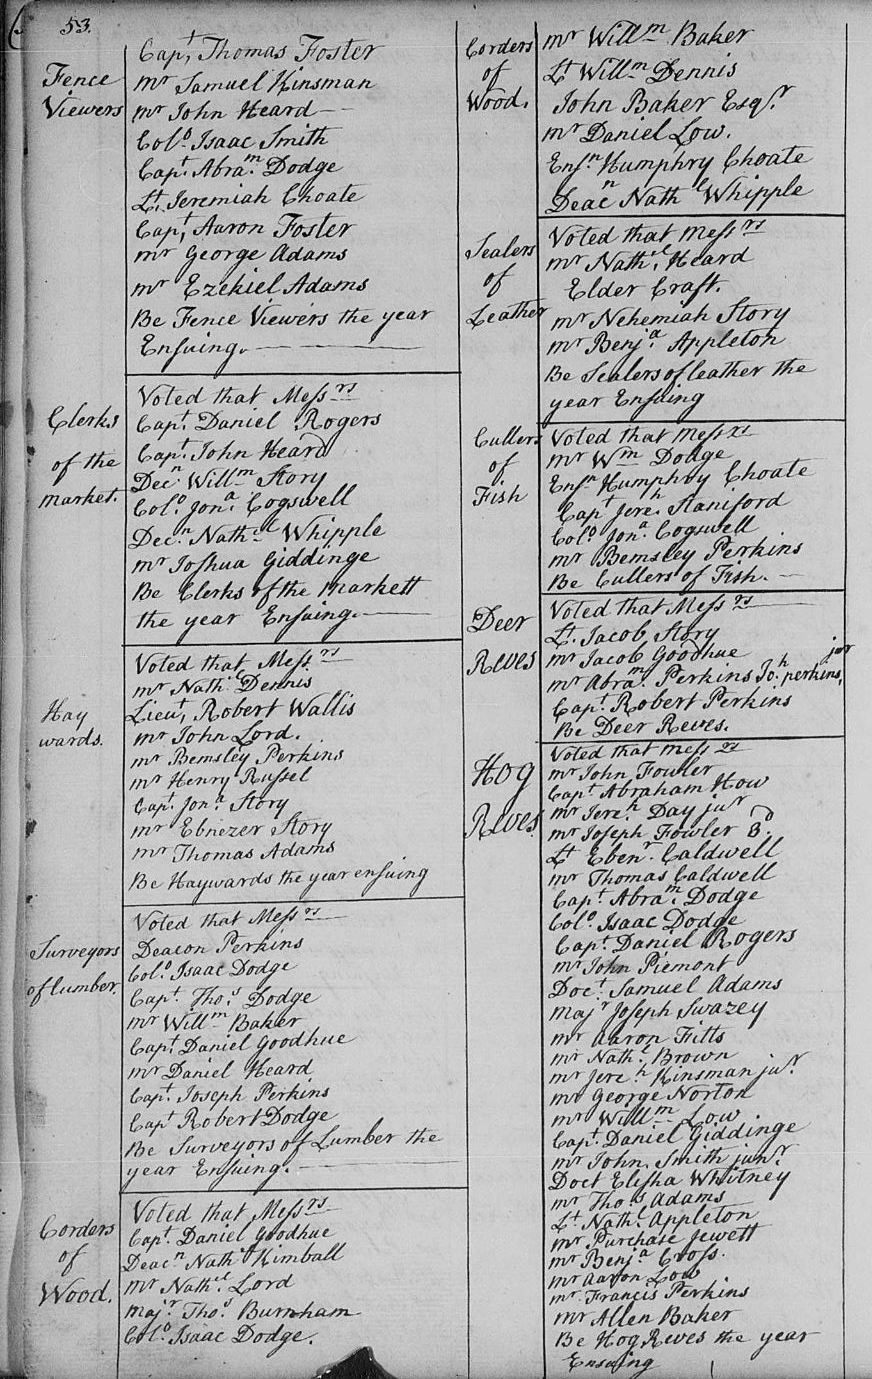 53.
Fence
Viewers
Capt Thomas Foster
mr Samuel Kinsman
mr John Heard
Colo Isaac Smith
Capt. Abram Dodge
Lt. Jeremiah Choate
Capt Aaron Foster
mr George Adams
mr Ezekiel Adams
Be Fence Viewers the year
Ensuing.
Clerks
of the
market.
Voted that Messrs
Capt. Daniel Rogers
Capt. John Heard
Decn. Willm Story
Colo Jona. Cogswell
Decn. Nathel Whipple
mr Joshua Giddinge
Be Clerks of the Markett
the year Ensuing.
Hay
wards.
Voted that Messrs
mr Nathl Dennis
Lieut, Robert Wallis
mr John Lord.
mr Bemsley Perkins
mr Henry Russel
Capt. Jona Story
mr Ebnezer Story
mr Thomas Adams
Be Haywards the year ensuing
Surveyors
of lumber.
Voted that Messrs
Deacon Perkins
Colo Isaac Dodge
Capt. Thos. Dodge
mr Willm Baker
Capt. Daniel Goodhue
mr Daniel Heard
Capt. Joseph Perkins
Capt Robert Dodge
Be Surveyors of Lumber the
year Ensuing.
Corders
of
Wood.
Voted that Messrs
Capt. Daniel Goodhue
Deacn Nathl Kimball
mr Nathel Lord
majr. Thos Burnham
Colo Isaac Dodge.
Corders
of
Wood.
mr Willm Baker
Lt Willm Dennis
John Baker Esqr.
mr Daniel Low.
Ensn Humphry Choate
Deacn Nathl Whipple
Sealers
of
Leather
Voted that Messrs
mr Nathel. Heard
Elder Craft.
mr Nehemiah Story
mr Benja. Appleton
Be Sealers of leather the
year Ensuing
Cullers
of
Fish
Voted that Messrs
mr Wm Dodge
Ensn Humphry Choate
Capt Jereh. Staniford
Colo Jona. Cogswell
mr Bemsley Perkins
Be Cullers of Fish.
Deer
Reves
Voted that Messrs
Lt. Jacob Story
mr Jacob Goodhue
mr Abram. Perkins Joh perkins, jur
Capt. Robert Perkins
Be Deer Reves.
Hog
Reves.
Voted that Messrs
mr John Fowler
Capt Abraham How
mr Jereh. Day jur
mr Joseph Fowler 3d.
Lt Ebenr. Caldwell
mr Thomas Caldwell
Capt. Abram. Dodge
Colo. Isaac Dodge
Capt. Daniel Rogers
mr John Piemont
Doct. Samuel Adams
Majr Joseph Swazey
mr Aaron Fitts
mr Nathl Brown
mr Jereh Kinsman jur.
mr George Norton
mr Willm Low
Capt. Daniel Giddinge
mr John Smith junr.
Doct Elisha Whitney
mr Thos Adams
Lt Nathl. Appleton
mr Purchase Jewett
mr Benja Cross.
mr Aaron Low
mr Francis Perkins
mr Allen Baker
Be Hog Reves the year
Ensuing